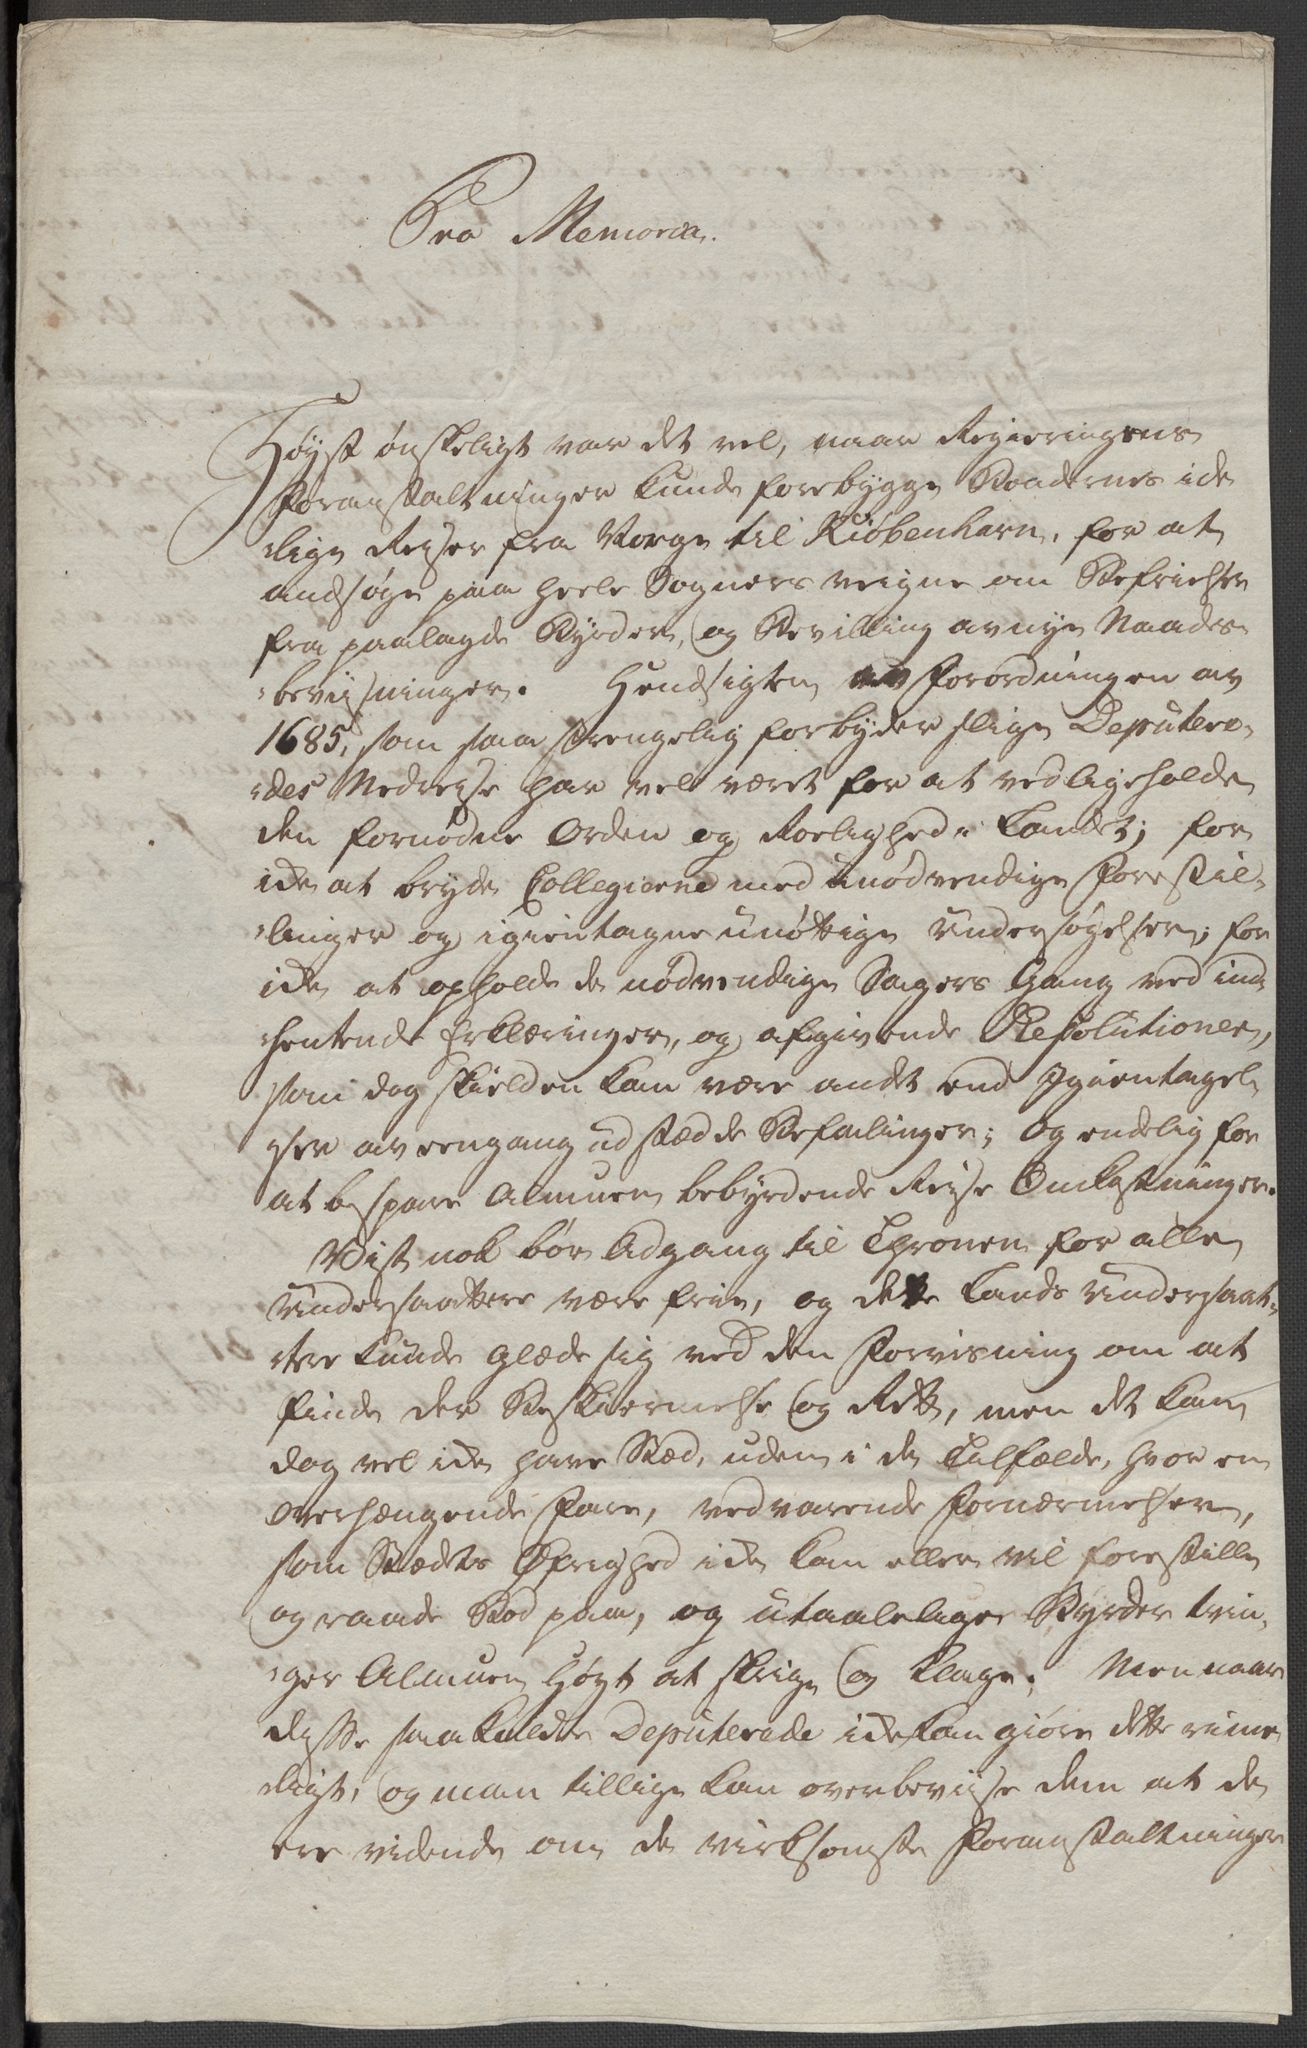 Pro Memoria.
Høyst ønskeligt var det vel, naar Regieringens
Foranstaltninger kunde forebygge Bondernes ide
lige Reyser fra Norge til Kiøbenhavn, for at
andsøge paa heele Sogners veigne om Befrielser
fra paalagde Byrder, og Bevilling av nye Naades
beviisninger. Hensigten av Forordningen av
1685, som saa strengelig forbyder slige Deputere
des Nedreyse har vel været for at vedligeholde
den fornødne Orden og Roelighed i Landet; for
ide at bryde Collegierne med unødvendige Forestil
linger og igientagne unøttige Undersøgelser; for
ide at opholde de nødvendige Sagers Gang ved ind
hentende Erklæringer, og afgivende Resolutioner,
som dog skielden kan være andet end Igientagel
ser av eengang udstædde Befalinger; og endelig for
at bespare Almuen bebyrdende Reyse Omkostninger.
Vist nok bør Adgang til Thronen for alle
Undersaattere være frie, og dette Lands Undersaat
tere kunde glæde sig ved den Forvisning om at
finde der Beskiermelse og Rett, men det kan
dog vel ide have Stæd, uden i de Tilfælde, hvor en
overhængende Fare, vedvarende Fornærmelser,
som Stædets Øfrighed ide kan eller vil forestille
og raade Bod paa, og utaalelige Byrder tvin
ger Almuen høyt at skrige og klage. Men naar
disse saakaldte Deputerede ide kan giøre dette rime
ligt, og man tillige kan overbeviise dem at de
ere vidende om de virksomste Foranstaltninger